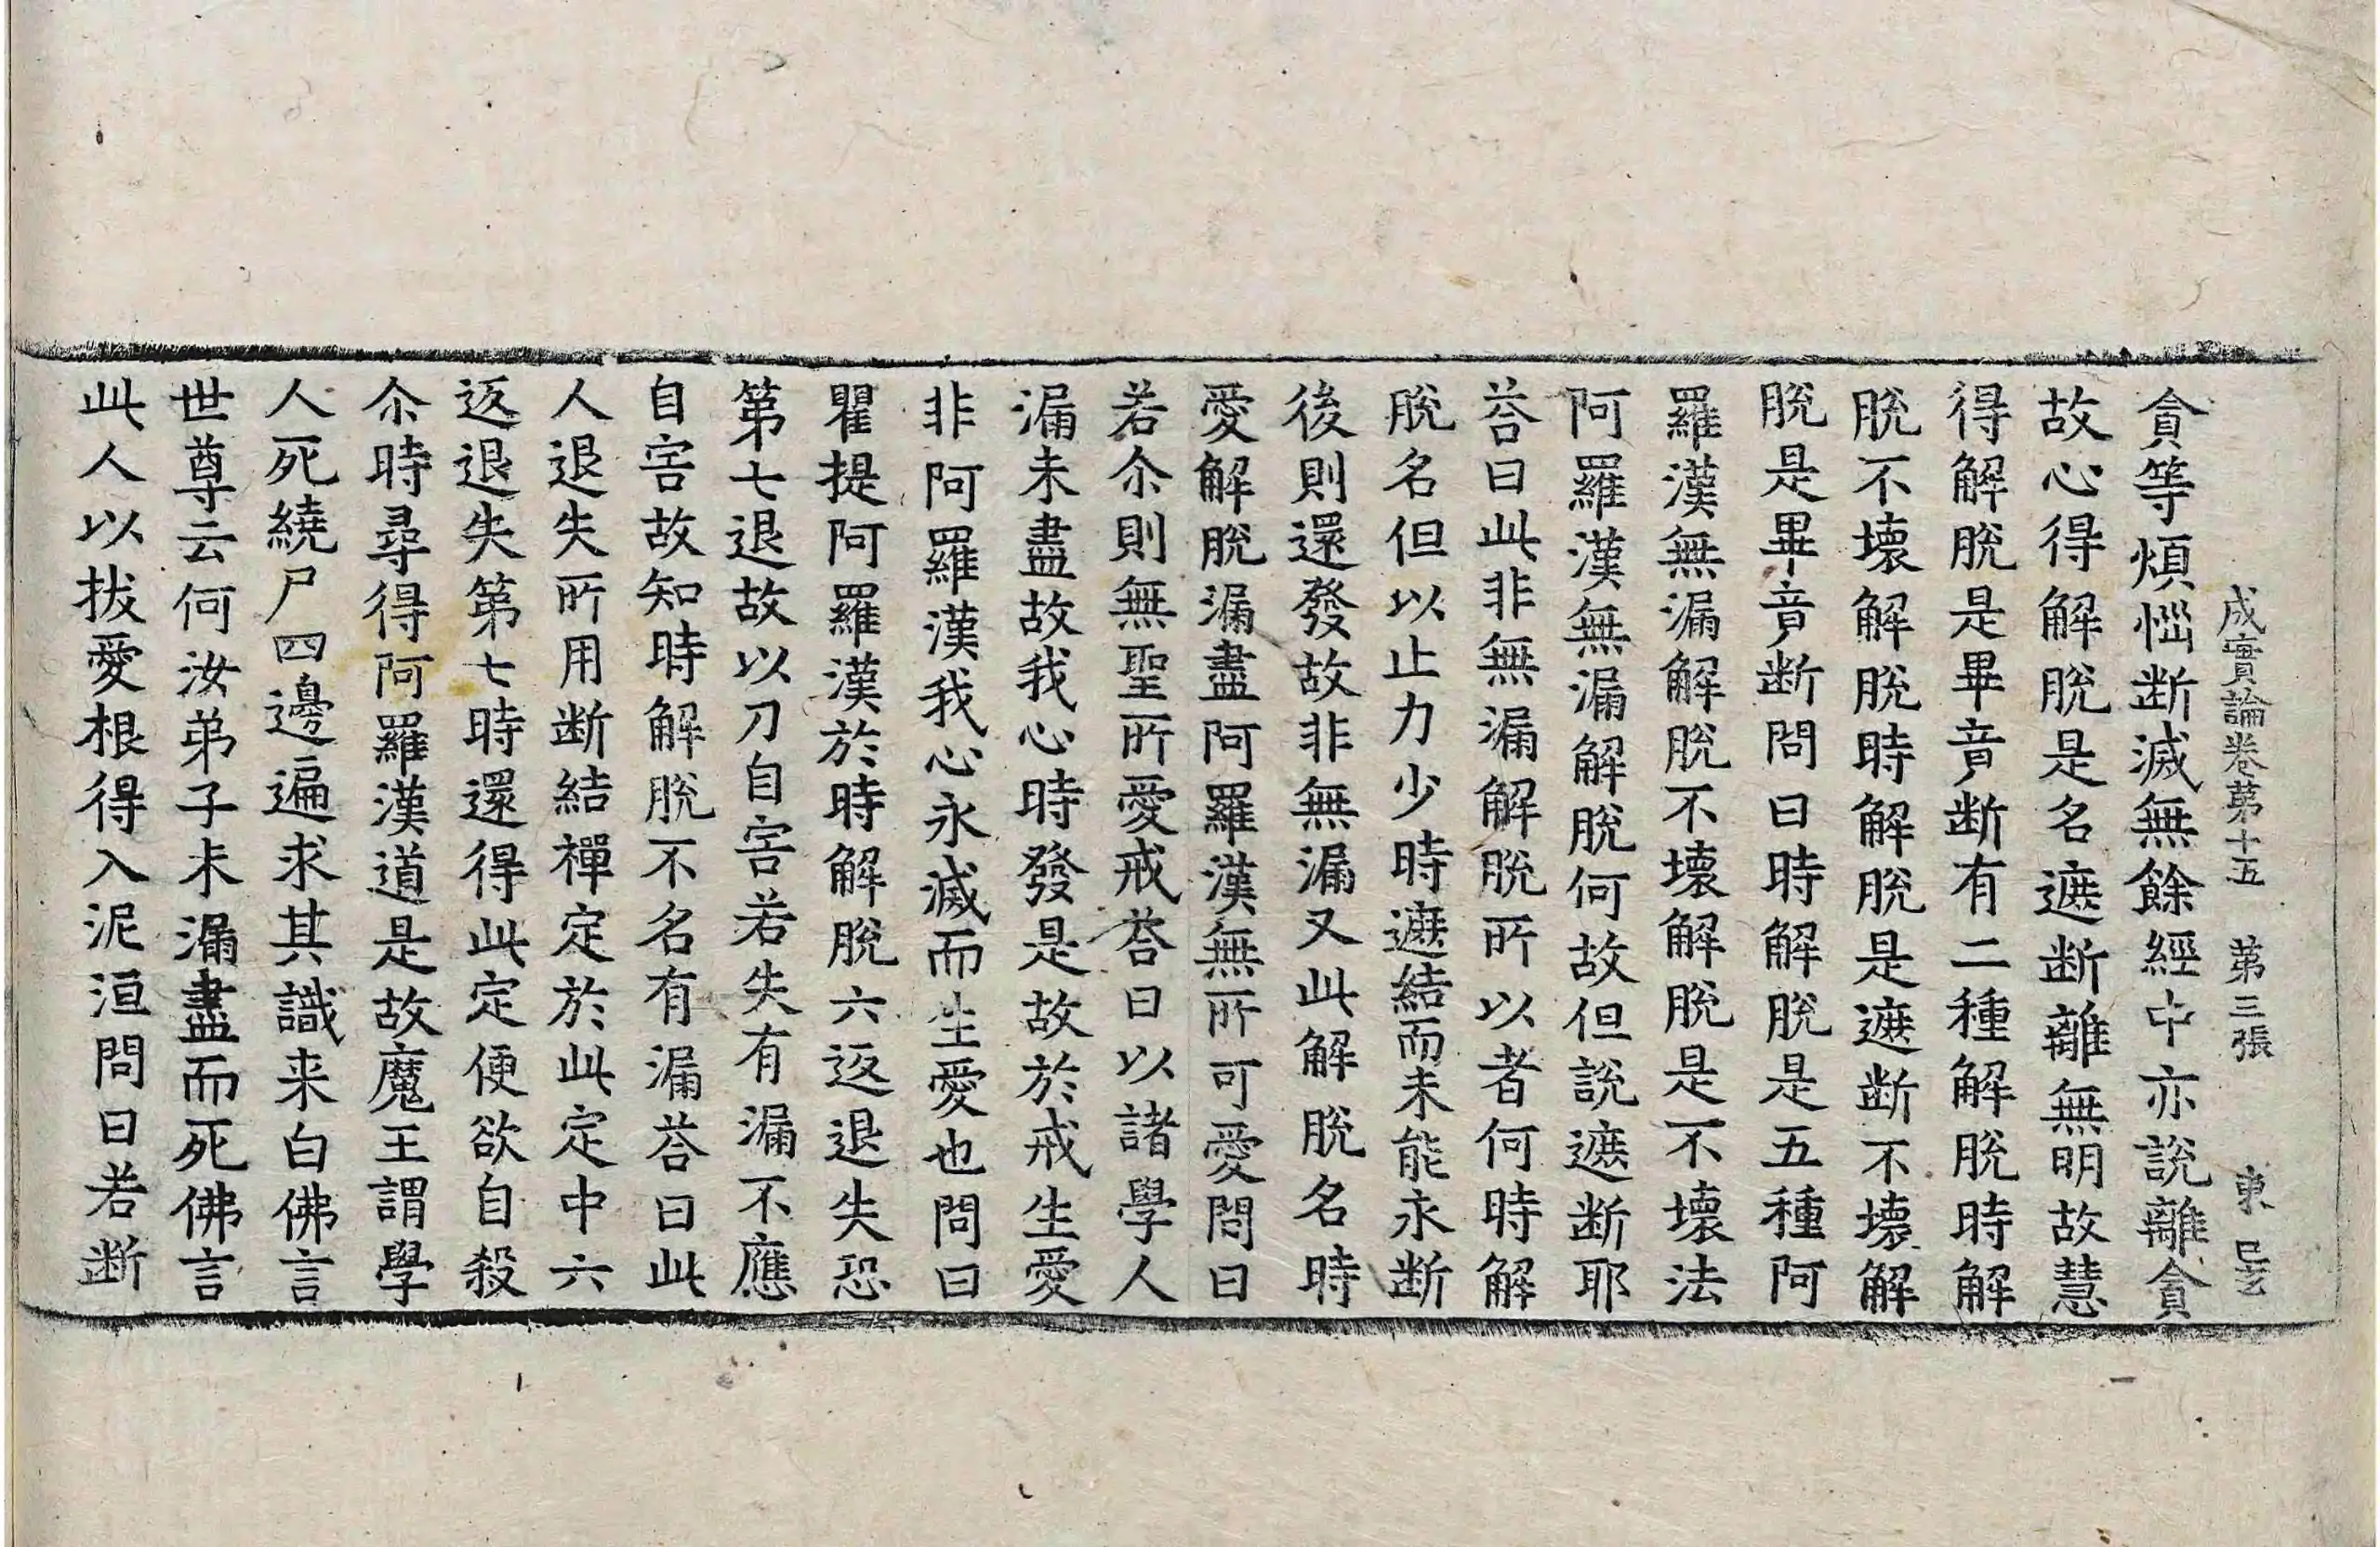 成實論卷第十五　第三張　東
貪等煩惱断滅無餘經中亦說離貪
故心得解脫是名遮断離無明故慧
得解脫是畢竟断有二種解脫時解
脫不壞解脫時解脫是遮断不壞解
脫是畢竟断問曰時解脫是五種阿
羅漢無漏解脫不壞解脫是不壞法
阿羅漢無漏解脫何故但說遮断耶
荅曰此非無漏解脫所以者何時解
脫名但以止力少時遮結而未能永断
後則還發故非無漏又此解脫名時
愛解脫漏盡阿羅漢無所可愛問曰
若尒則無聖所愛戒荅曰以諸學人
漏未盡故我心時發是故於戒生愛
非阿羅漢我心永滅而生愛也問曰
瞿提阿羅漢於時解脫六返退失恐
第七退故以刀自害若失有漏不應
自害故知時解脫不名有漏荅曰此
人退失所用断結禪定於此定中六
返退失第七時還得此定便欲自殺
尒時尋得阿羅漢道是故魔王謂學
人死繞尸四邊遍求其識来白佛言
世尊云何汝弟子未漏盡而死佛言
此人以拔愛根得入泥洹問曰若断